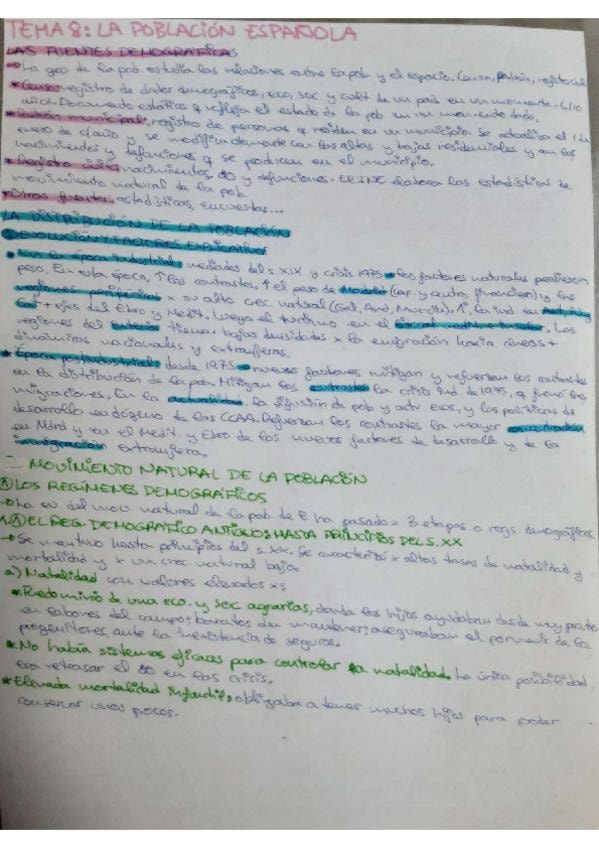 TEMA 8: LA POBLACIÓN ESPAÑOLA
LAS FUENTES DEMOGRÁFICAS
→ La geo de la pob. estudia las relaciones entre la pob. y el espacio. Censo, padrón, registro civil
* Censo: registro de datos demográficos, eco, soc. y cult. de un país en un momento. C/10
años. Documento estático q refleja el estado de la pob en un momento dado.
* Padrón municipal: registro de personas q residen en un municipio. Se actualiza el 1 de
enero de c/año y se modifica con las altas y bajas residenciales y con los
nacimientos y defunciones q se producen en el municipio.
* Registro civil: nacimientos, y defunciones. El INE elabora las estadísticas de
movimiento natural de la pob.
* Otras fuentes: estadísticas, encuestas...
LA DISTRIBUCIÓN DE LA POBLACIÓN
EVOLUCIÓN Y FACTORES EXPLICATIVOS
* En la época industrial: mediados del s. XIX y crisis 1975 → los factores naturales perdieron
peso. En esta época, ↑ los contrastes, ↑ el peso de Madrid (cap. y centro financiero) y las
regiones periféricas x su alto crec. natural (Gal, And, Murcia), ↑ la ind. en
Cat + ejes del Ebro y Medit. Luego el turismo en el litoral. Las
regiones del interior tienen bajas densidades x la emigración hacia áreas +
dinámicas nacionales y extranjeras.
* Época postindustrial: desde 1975 → nuevos factores mitigan y refuerzan los contrastes
en la distribución de la pob. Mitigan los contrastes la crisis ind. de 1975, q frenó las
migraciones. En la actualidad, la difusión de pob y actv ecos, y las políticas de
desarrollo endógeno de las CCAA. Refuerzan los contrastes la mayor concentración
en Mdrd y en el Medit. y Ebro de los nuevos factores de desarrollo y de la
inmigración extranjera.
MOVIMIENTO NATURAL DE LA POBLACIÓN
Ⓐ LOS REGÍMENES DEMOGRÁFICOS
→ La ev. del mov. natural de la pob. de E ha pasado x 3 etapas o regs. demográficos.
1. Ⓐ EL REG. DEMOGRÁFICO ANTIGUO: HASTA PRINCIPIOS DEL S. XX
→ Se mantuvo hasta principios del s. XX. Se caracterizó x altas tasas de natalidad y
mortalidad y x un crec. natural bajo.
a) Natalidad con valores elevados x:
* Predominio de una eco. y soc. agrarias, donde los hijos ayudaban desde muy pronto
en labores del campo; baratos de mantener; aseguraban el porvenir de los
progenitores, ante la inexistencia de seguros.
* No había sistemas eficaces para controlar la natalidad. La única posibilidad
era retrasar el en las crisis.
* Elevada mortalidad infantil; obligaba a tener muchos hijos para poder
conservar unos pocos.